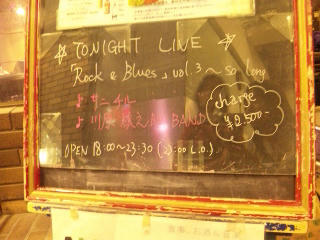 ☆ TONIGHT LIVE ☆
「Rock & Blues」vol.3 〜 so long
♪ サニチル
♪ 川 BAND
charge
¥2.500-
OPEN 18:00〜23:30 (23:00 L.O.)